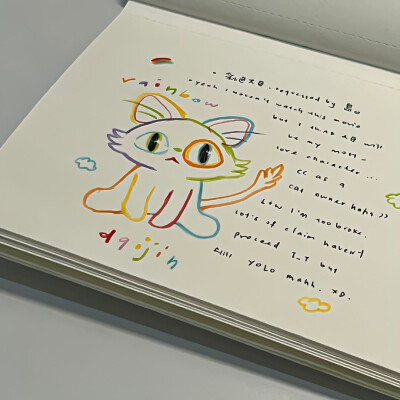 rainbow
requested by
yeah i haven't watch this movie
but i think 大臣 will
be my most
love character...
cc as a
cat owner haha >>
now i'm so broke.
lot's of claim haven't
proceed T-T but
still YOLO mahh. XD.
daijin